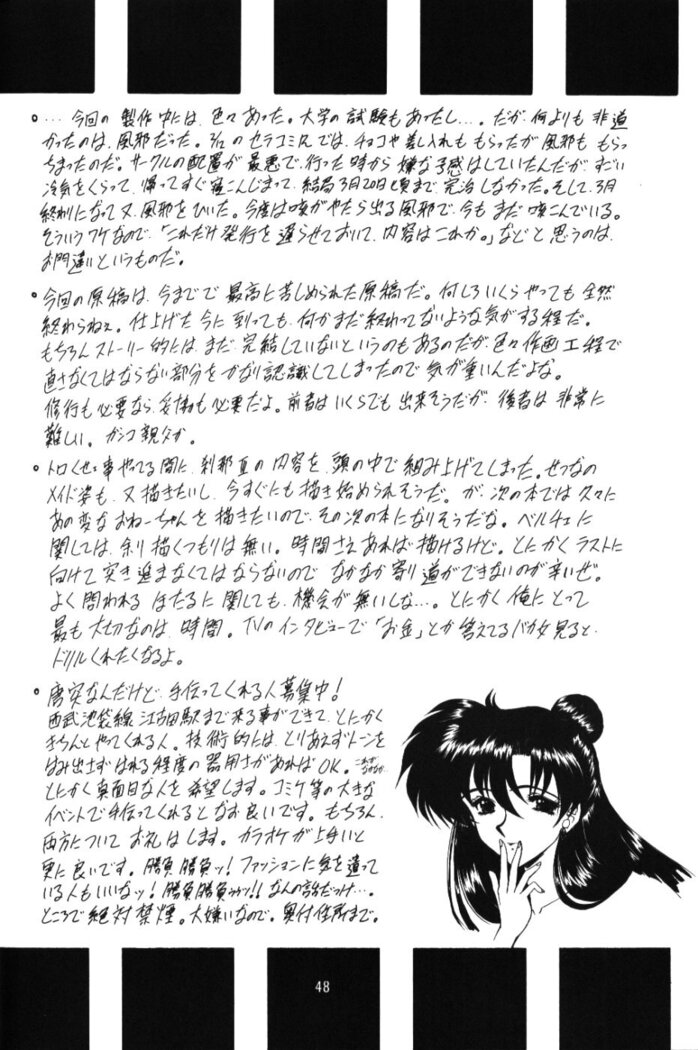 … 今回の製作中には、色々あった。大学の試験もあったし…。だが、何よりも非道
かったのは、風邪だった。のセラコミでは、チョコや差し入れももらったが風邪ももらっ
ちまったのだ。サークルの配置が最悪で、行った時から嫌な予感はしていたんだが、すごい
冷気をくらって、帰ってすぐ寝こんじまって、結局3月20日頃まで完治しなかった。そして、3月
終わりになって又、風邪をひいた。今度は咳がやたら出る風邪で、今もまだ咳こんでいる。
そういうワケなので、「これだけ発行を遅らせておいて、内容はこれか。」などと思うのは、
お門違いというものだ。
今回の原稿は、今までで最高に苦しめられた原稿だ。何しろいくらやっても全然
終わらねぇ。仕上げた今に到っても、何かまだ終わってないような気がする程だ。
もちろんストーリー的には、まだ完結していないというのもあるのだが、色々作画工程で
直さなくてはならない部分をかなり認識してしまったので気が重いんだよな。
修行も必要なら、妥協も必要だよ。前者はいくらでも出来そうだが、後者は非常に
難しい。ガンコ親父か。
トロくせェ事やってる間に、刹那真の内容を、頭の中で組み上げてしまった。せつなの
メイド姿も、又描きたいし、今すぐにも描き始められそうだ。が、次の本では久々に
あの変なおねーちゃんを描きたいので、その次の本になりそうだな。ベルチェに
関しては、余り描くつもりは無い。時間さえあれば描けるけど。とにかくラストに
向けて突き進まなくてはならないので、なかなか寄り道ができないのが辛いぜ。
よく問われるほたるに関しても、機会が無いしな…。とにかく俺にとって
最も大切なのは、時間。TVのインタビューで「お金」とか答えてるバカ女見ると、
ドリルくれたくなるよ。
唐突なんだけど、手伝ってくれる人募集中！
西武池袋線、江古田駅まで来る事ができて、とにかく
きちんとやってくれる人。技術的には、とりあえずトーンを
はみ出さずはれる程度の器用さがあればOK。
とにかく真面目な人を希望します。コミケ等の大きな
イベントで手伝ってくれるとなお良いです。もちろん、
両方についてお礼はします。カラオケが上手いと
更に良いです。勝負勝負ッ！ファッションに気を遣って
いる人もいいなッ！勝負勝負ッ!! なんの話だっけ…。
ところで絶対禁煙。大嫌いなので。奥付住所まで。
48